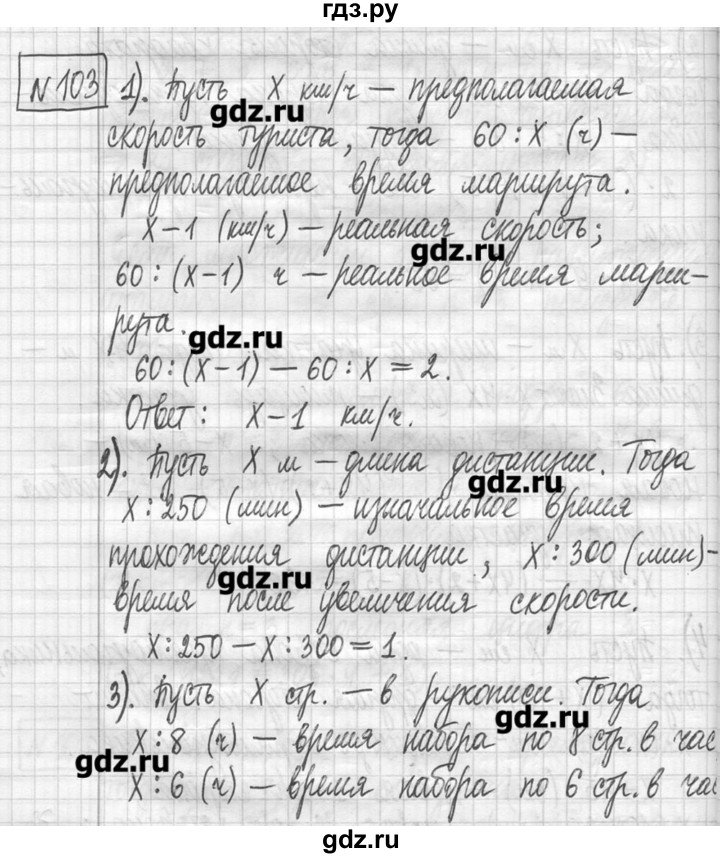 гдз.ру
№ 103 1). Пусть x км/ч – предполагаемая
gdz.ru
скорость туриста, тогда 60 : x (ч) –
предполагаемое время маршрута.
x – 1 (км/ч) – реальная скорость;
gdz.ru
60 : (x–1) ч – реальное время марш–
рута.
gdz.ru
60 : (x–1) – 60 : x = 2.
Ответ: x–1 км/ч.
2). Пусть x м – длина дистанции. Тогда
gdz.ru
x : 250 (мин) – изначальное время
прохождения дистанции, x : 300 (мин)–
gdz.ru
время после увеличения скорости.
x : 250 – x : 300 = 1.
3). Пусть x стр. – в рукописи. Тогда
gdz.ru
x : 8 (ч) – время набора по 8 стр. в час
gdz.ru
x : 6 (ч) – время набора по 6 стр. в час
gdz.ru